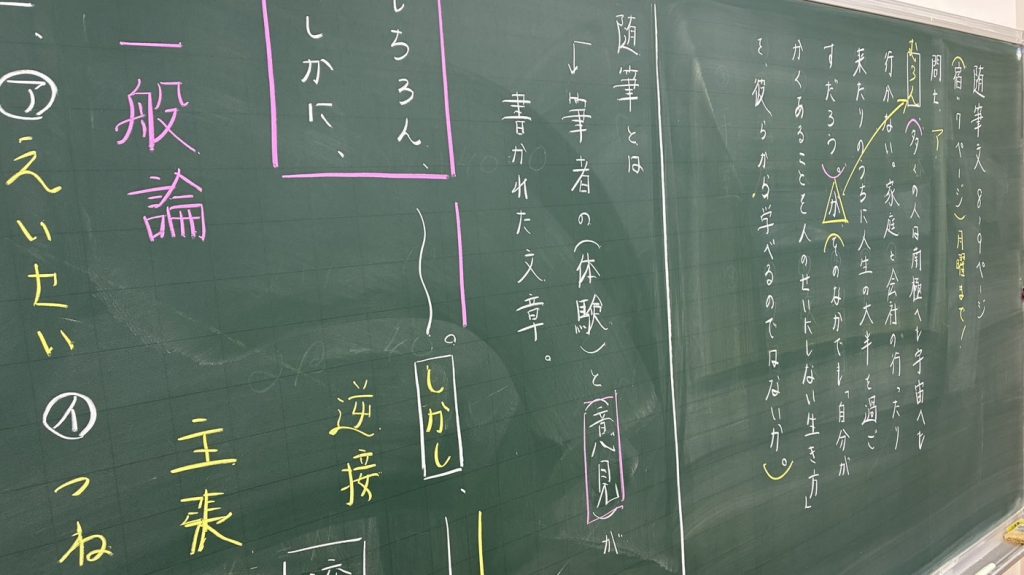 随筆文 8・9ページ
(宿・7ページ)月曜まで!
問七 ア
むろん(多くの人は南極へも宇宙へも
行かない。家庭と会社の行ったり
来たりのうちに人生の大半を過ご
すだろう)が(そのなかでも「自分が
かくあることを人のせいにしない生き方」
を、彼らから学べるのではないか。)
随筆とは
→筆者の(体験)と(意見)が
書かれた文章。
ちろん、
しかに、
。しかし、
逆接
一般論
主張
ア えいせい イ つね
一、